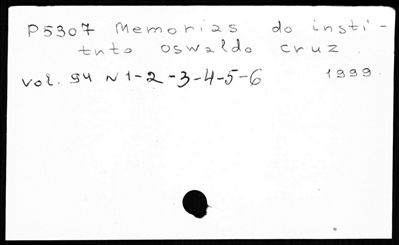 P5307 Memorias do insti-
tuto oswaldo cruz.
vol. 94 N 1-2-3-4-5-6 1999.